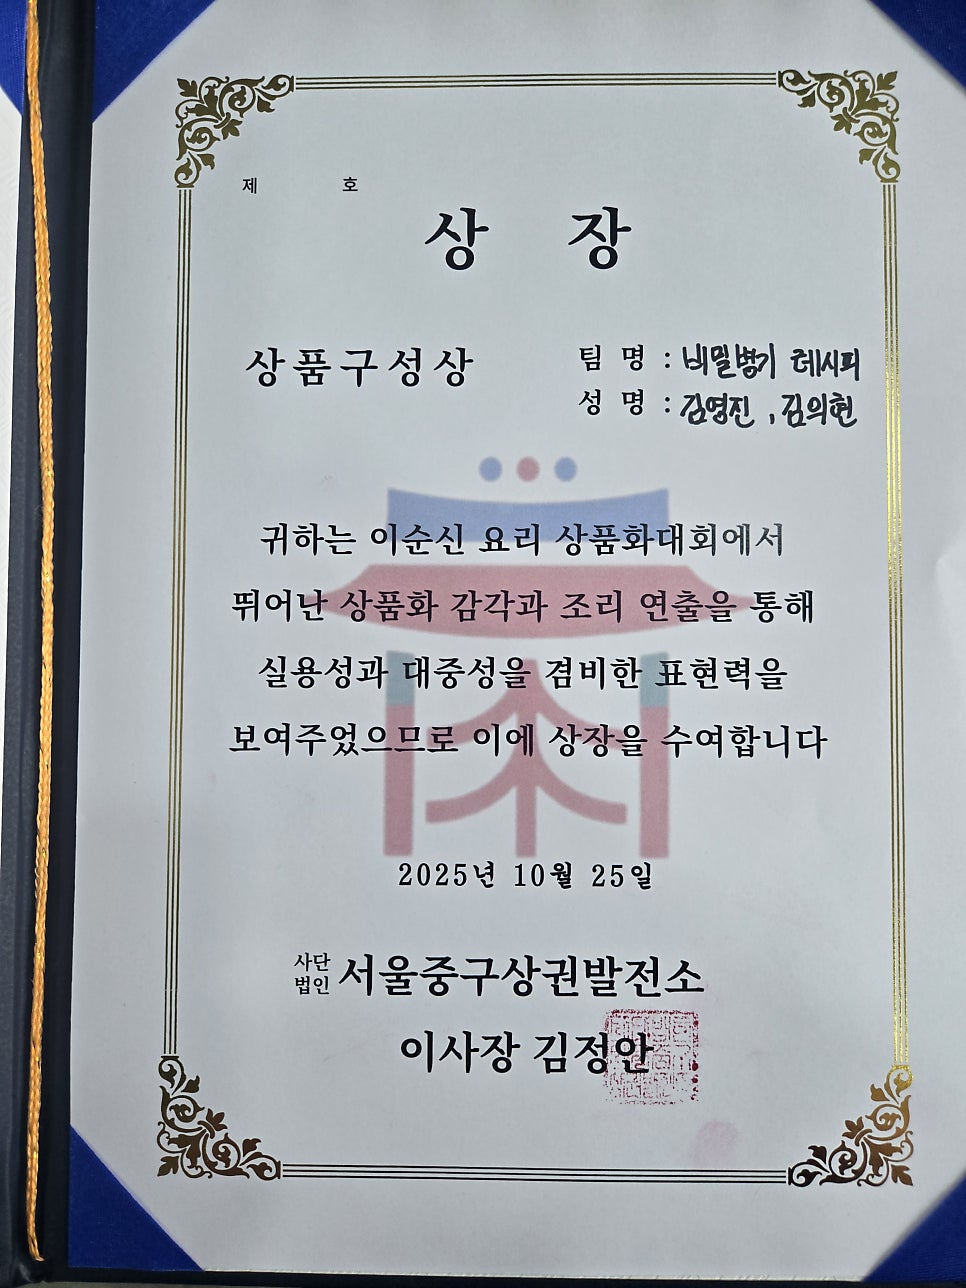 제 호
상 장
상품구성상
팀 명 : 비밀병기 레시피
성 명 : 김영진, 김의현
귀하는 이순신 요리 상품화대회에서
뛰어난 상품화 감각과 조리 연출을 통해
실용성과 대중성을 겸비한 표현력을
보여주었으므로 이에 상장을 수여합니다
2025년 10월 25일
사단법인 서울중구상권발전소
이사장 김정안